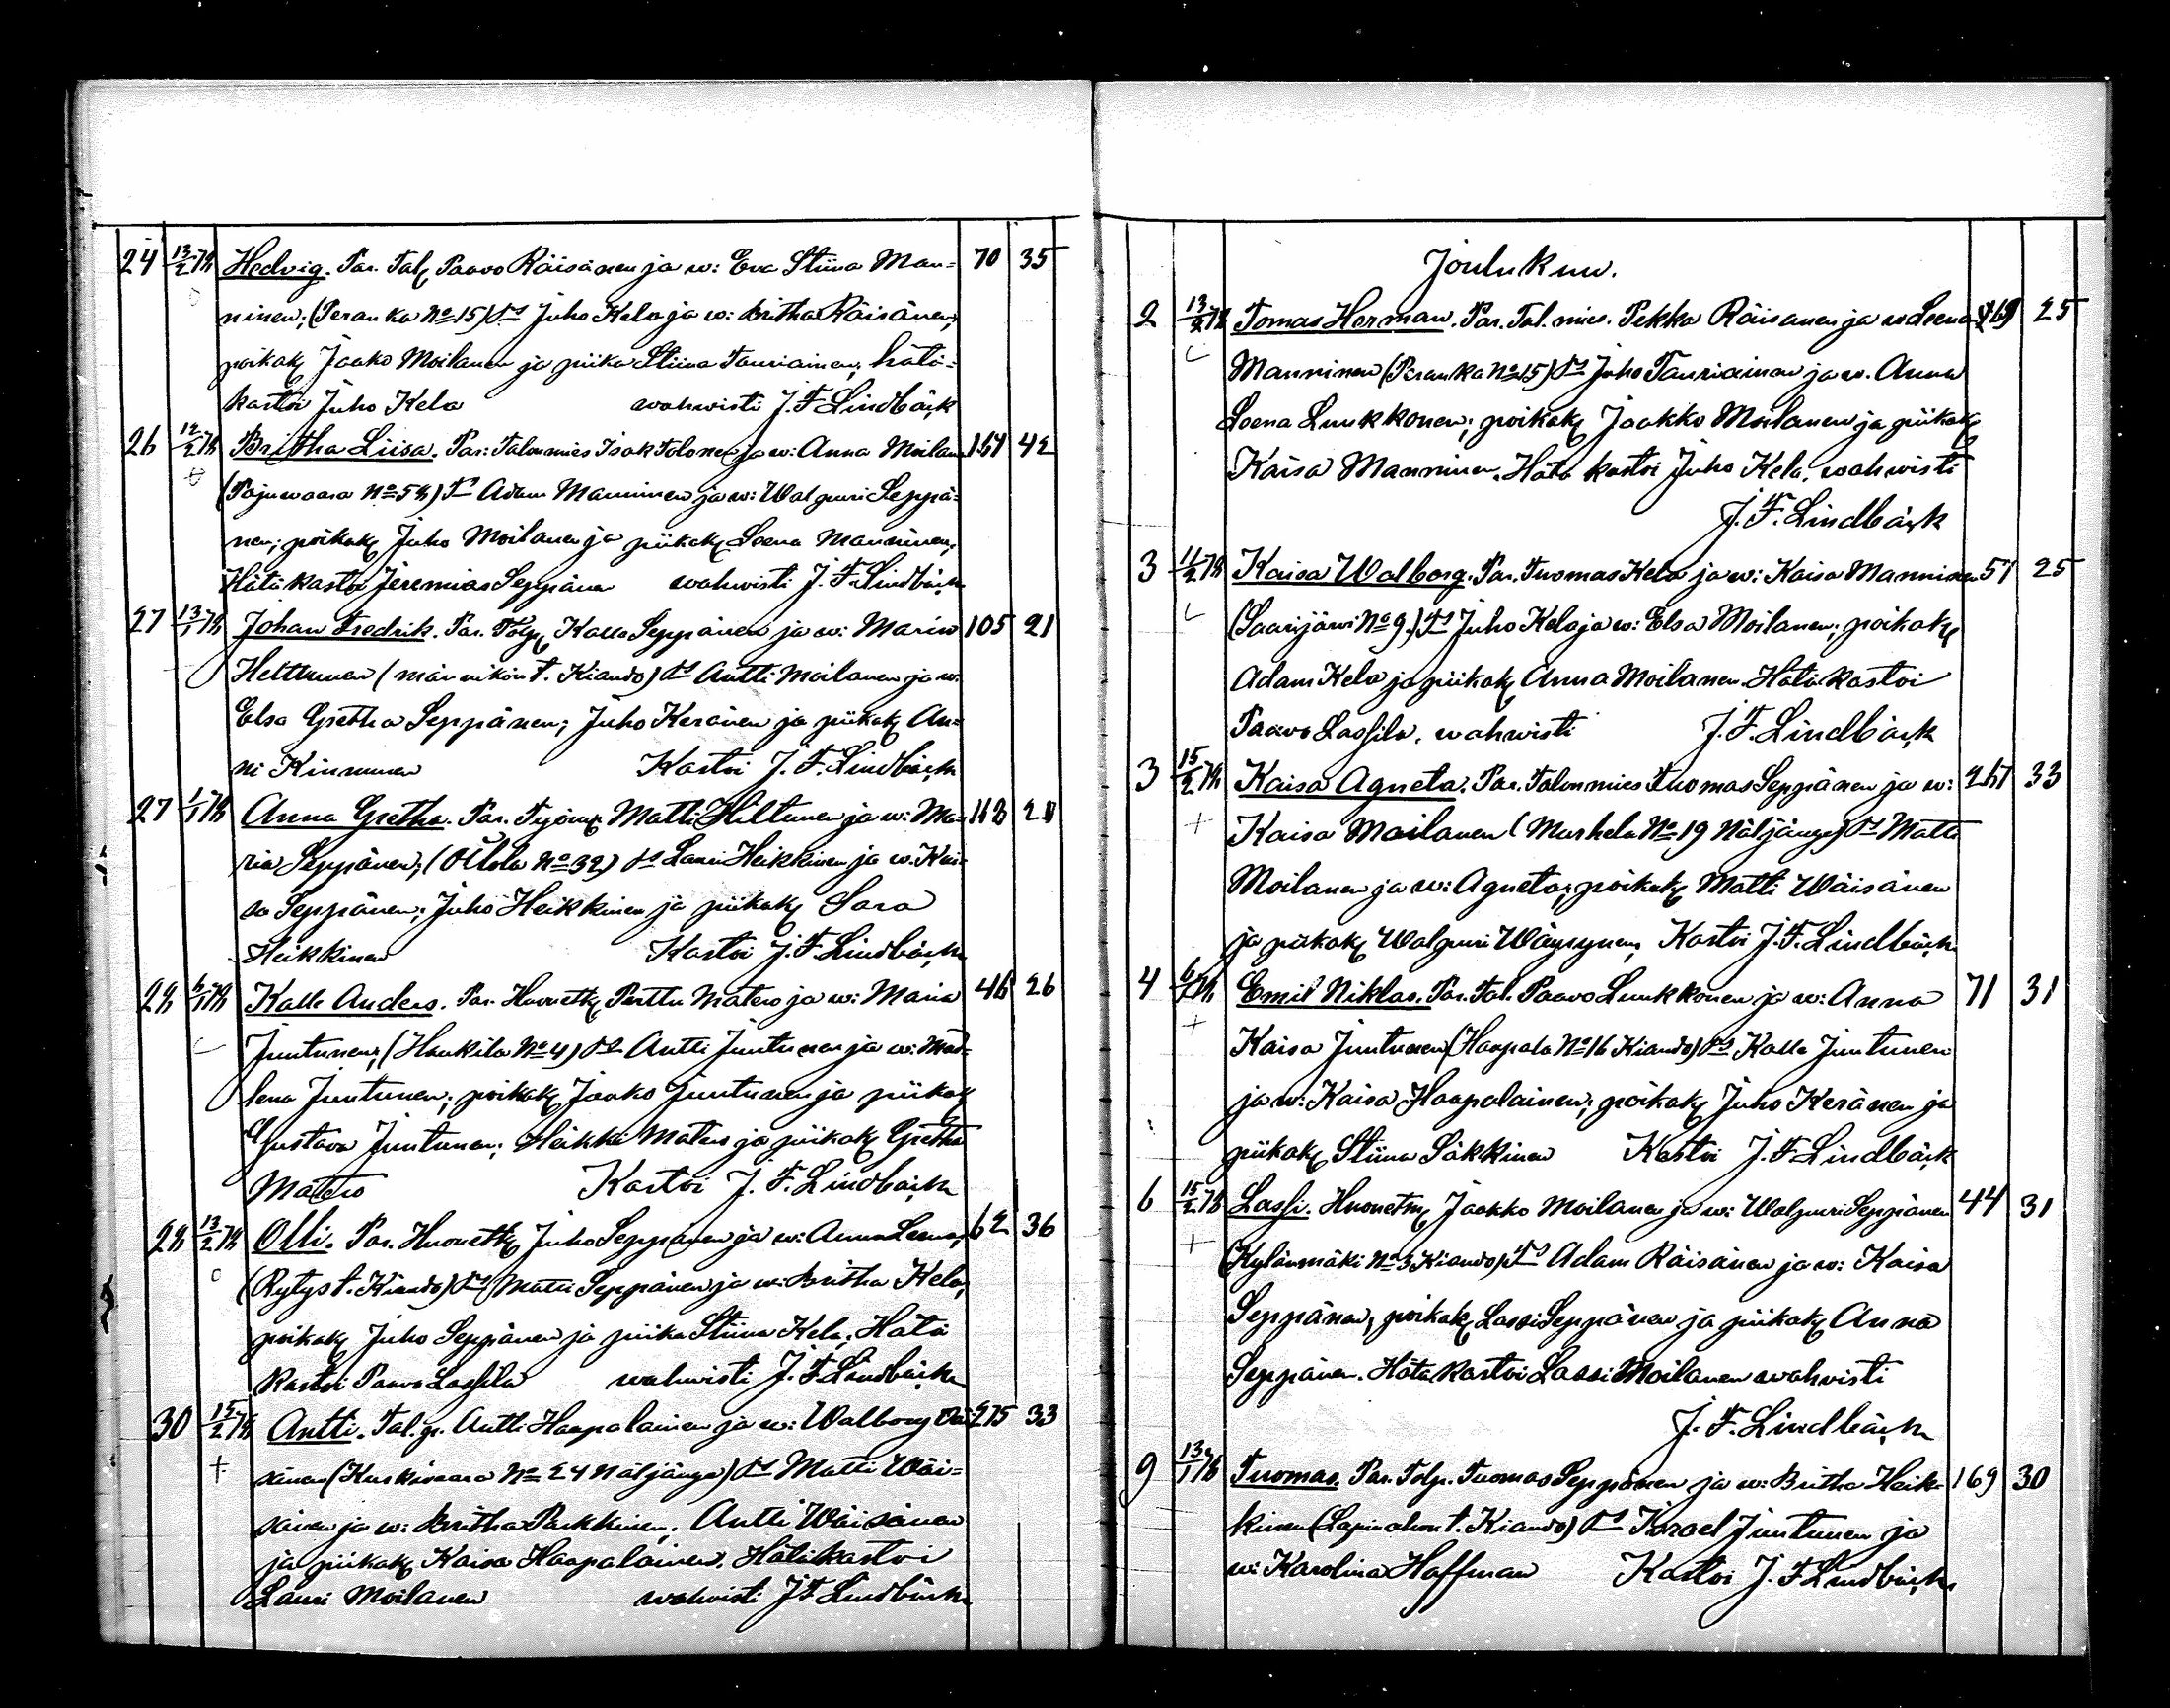 24 13/2 78 Hedvig. Par. Tal. Paavo Räisänen ja w: Eva Stiina Man= 70 35
ninen; (Peranka No 15) Juho Kela ja w: Britha Räisänen;
poikak Jaako Moilanen ja piika Stiina Tauriainen, hätä=
kastoi Juho Kela wahwisti J. F. Lindbäck
26 12/2 78 Britha Liisa. Par: Talonmies Isak Tolonen ja w: Anna Moilan 42
(Pajuwaara No 58) Adam Manninen ja w: Walpuri Seppä=
nen; poikak Juho Moilanen ja piikak Leena Manninen,
Hätä kastoi Jeremias Seppänen wahwisti J. F. Lindbäck
27 13/1 78 Johan Fredrik. Par. Tolp Kalle Seppänen ja w: Maria 105 21
Helttunen (männikön t. Kiando) Antti Moilanen ja w:
Elsa Gretha Seppänen; Juho Keränen ja piikak An=
ni Kinnunen Kastoi J. F. Lindbäck
27 1/1 78 Anna Gretha. Par. Työm Matti Hiltunen ja w: Ma=
ria Seppänen; (No 32) Lauri Heikkinen ja w. Kai=
sa Seppänen; Juho Heikkinen ja piikak Sara
Heikkinen Kastoi J. F. Lindbäck
28 6/1 78 Kalle Anders. Par. Huonetk Perttu Matero ja w: Maria 46 26
Juntunen; (Haukila No 4) Antti Juntunen ja w: Mad=
lena Juntunen; poikak Jaako Juntunen ja piikak
Gustava Juntunen; Heikki Matero ja piikak Gretha
Matero Kastoi J. F. Lindbäck
28 13/2 78 Olli. Par. Huonetk Juho Seppänen ja w: Anna Leena, 62 36
(Rytys t. Kiando) Matti Seppänen ja w: Britha Kela;
poikak Juho Seppänen ja piika Stiina Kela. Hätä
kastoi Paavo Lassila wahwisti J. F. Lindbäck
30 15/2 78 Antti. Tal. p. Antti Haapalainen ja w: Walborg Wäi 275 33
sänen (Kuskiwaara No 24 Näljänge) Matti Wäi=
sänen ja w: Britha Parkkinen, Antti Wäisänen
ja piikak Kaisa Haapalainen. Hätäkastoi
Lauri Moilanen wahwisti J. F. Lindbäck
Joulukuu.
2 13/2 78 Tomas Herman. Par. Tal. mies. Pekka Räisänen ja w Leena 69 25
Manninen (Peranka No 15) Juho Tauriainen ja w. Anna
Leena Luukkonen; poikak Jaakko Moilanen ja piikak
Kaisa Manninen. Hätä kastoi Juho Kela, wahwisti
J. F. Lindbäck
3 11/2 78 Kaisa Walborg. Par. Tuomas Kela ja w: Kaisa Manninen 57 25
(Saarijärvi No 9.) Juho Kela ja w: Elsa Moilanen; poikak
Adam Kela ja piikak Anna Moilanen. Hätä kastoi
Paavo Lassila, wahwisti J. F. Lindbäck
3 15/2 78 Kaisa Agneta. Par. Talonmies Tuomas Seppänen ja w: 33
Kaisa Moilanen (Murhela No 19 Näljänge) Matti
Moilanen ja w: Agneta; poikak Matti Wäisänen
ja piikak Walpuri Wäyrynen, Kastoi J. F. Lindbäck
4 6/1 78 Emil Niklas. Par. Tal. Paavo Luukkonen ja w: Anna 71 31
Kaisa Juntunen (Haapala No 16 Kiando) Kalle Juntunen
ja w: Kaisa Haapalainen; poikak Juho Keränen ja
piikak Stiina Säkkinen Kastoi J. F. Lindbäck
6 15/2 78 Lassi. Huonetm Jaakko Moilanen ja w: Walpuri Seppänen 44 31
(Kylänmäki No 3 Kiando) Adam Räisänen ja w: Kaisa
Seppänen, poikak Lassi Seppänen ja piikak Anna
Seppänen. Hätä kastoi Lassi Moilanen wahvisti
J. F. Lindbäck
9 13/1 78 Tuomas. Par. Tolp. Tuomas Seppänen ja w: Britha Heik= 169 30
kinen (Lapinahon t. Kiando) Israel Juntunen ja
w: Karolina Hoffman Kastoi J. F. Lindbäck